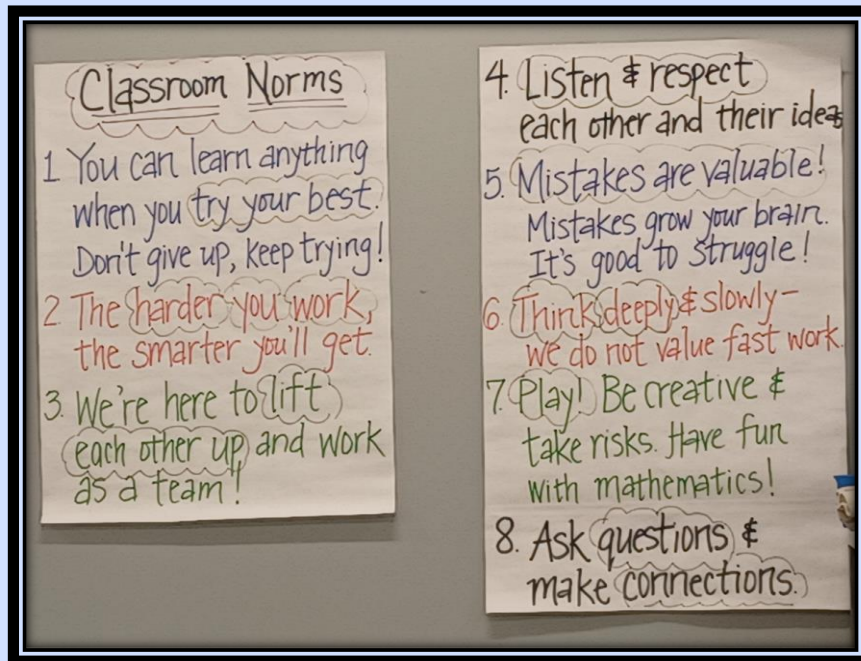 Classroom Norms
1 You can learn anything
when you try your best.
Don't give up, keep trying!
2. The harder you work,
the smarter you'll get.
3. We're here to lift
each other up and work
as a team!
4. Listen & respect
each other and their ideas
5. Mistakes are valuable!
Mistakes grow your brain.
It's good to struggle!
6. Think deeply & slowly-
we do not value fast work.
7. Play! Be creative &
take risks. Have fun
with mathematics!
8. Ask questions &
make connections.